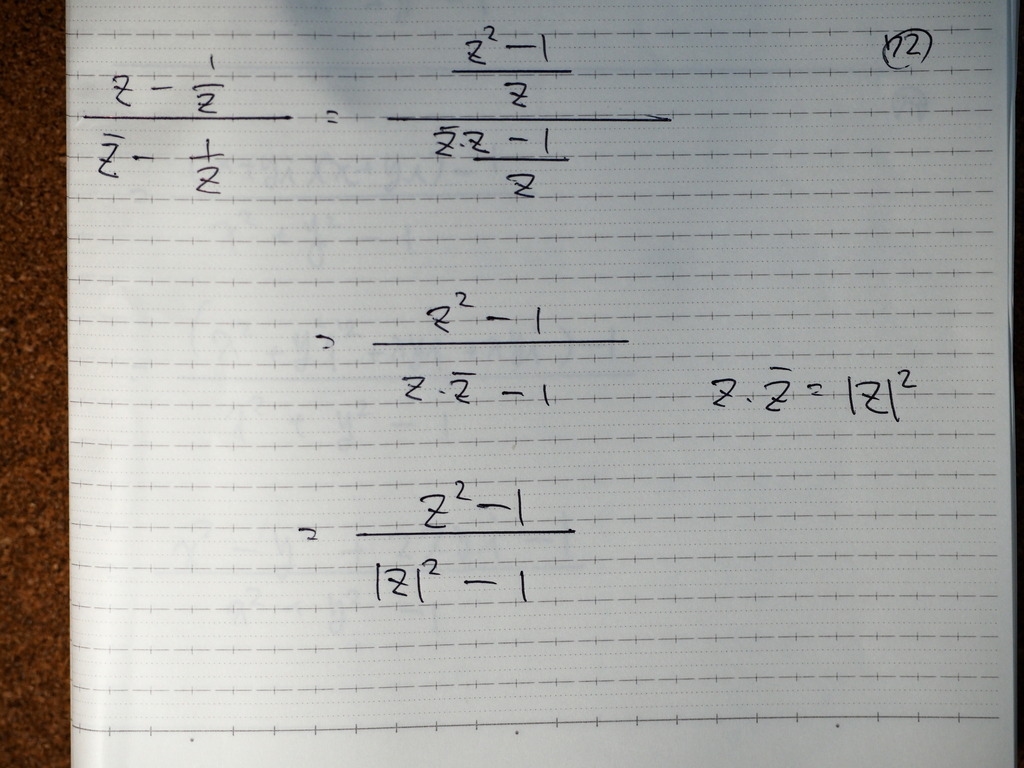 (z - 1/z)/(z̄ - 1/z) = ((z² - 1)/z)/((z̄·z - 1)/z)
12
= (z² - 1)/(z·z̄ - 1)
z·z̄ = |z|²
= (z² - 1)/(|z|² - 1)